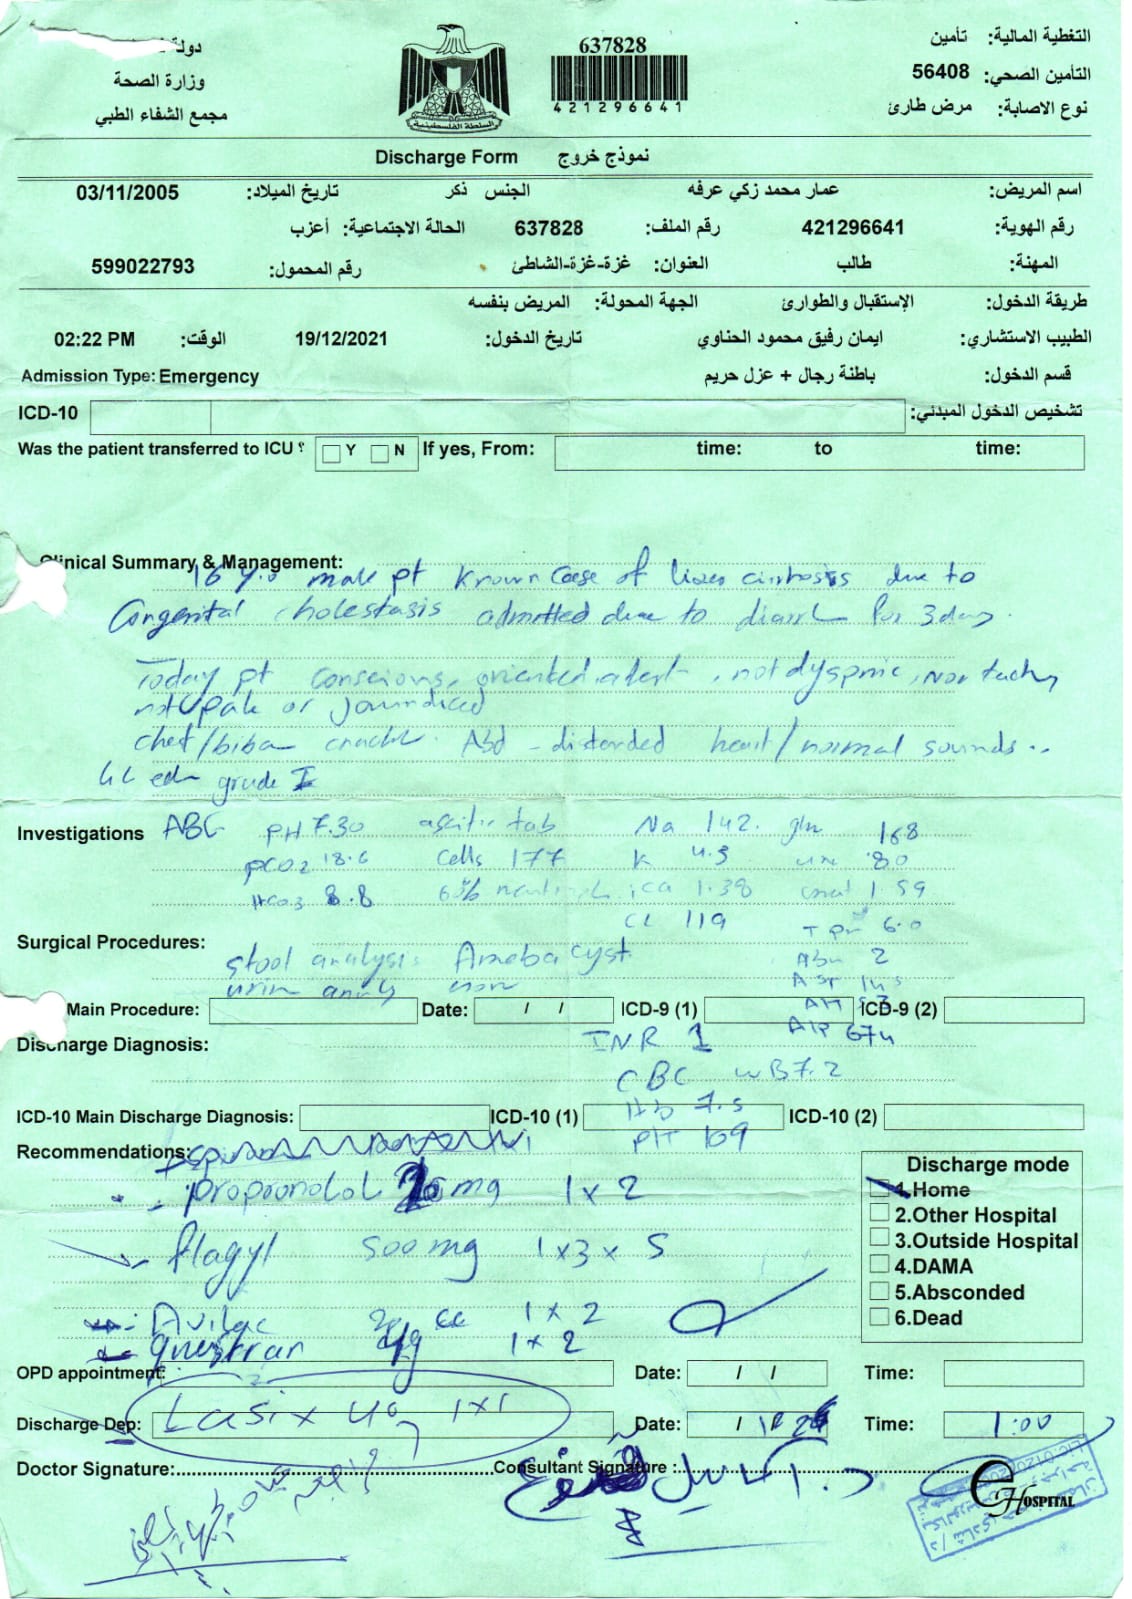 التغطية المالية: تأمين
التأمين الصحي: 56408
نوع الاصابة: مرض طارئ
637828
421296641
السلطة الفلسطينية
دولة
وزارة الصحة
مجمع الشفاء الطبي
Discharge Form نموذج خروج
اسم المريض: عمار محمد زكي عرفه الجنس ذكر تاريخ الميلاد: 03/11/2005
رقم الهوية: 421296641 رقم الملف: 637828 الحالة الاجتماعية: أعزب
المهنة: طالب العنوان: غزة-غزة-الشاطئ رقم المحمول: 599022793
طريقة الدخول: الإستقبال والطوارئ الجهة المحولة: المريض بنفسه
الطبيب الاستشاري: ايمان رفيق محمود الحناوي تاريخ الدخول: 19/12/2021 الوقت: 02:22 PM
قسم الدخول: باطنة رجال + عزل حريم Admission Type: Emergency
ICD-10 تشخيص الدخول المبدئي:
Was the patient transferred to ICU ? Y N If yes, From: time: to time:
Clinical Summary & Management:
16 y.o male pt known case of liver cirrhosis due to
Congenital cholestasis admitted due to diarrh for 3 days.
Today pt conscious, oriented, alert, not dyspnic, nor tachy
not pale or jaundiced
chest/ crackl. Abd - distended heart/normal sounds..
grade I
Investigations ABG PH 7.30 ascitic tab Na 142. glu 168
PCO2 18.6 cells 177 K 4.3 80
HCO3 8.8 ica 1.38 1.59
CL 119 T pr 6.0
Surgical Procedures:
stool analysis: Ameba cyst. Albu 2
urin analys AST
Main Procedure: Date: / / ICD-9 (1) ICD-9 (2)
Discharge Diagnosis: INR 1 Alp 674
CBC WB 7.2
ICD-10 Main Discharge Diagnosis: ICD-10 (1) Hb 7.5 ICD-10 (2)
Recommendations: PlT 109
propronolol mg 1x2
flagyl 500 mg 1x3x5
Avilac cc 1x2
questran 4g 1x2
Discharge mode
1.Home
2.Other Hospital
3.Outside Hospital
4.DAMA
5.Absconded
6.Dead
OPD appointment: Date: / / Time:
Discharge Dep: Lasix 40 1x1 Date: / Time: 1:00
Doctor Signature: Consultant Signature :
eHOSPITAL